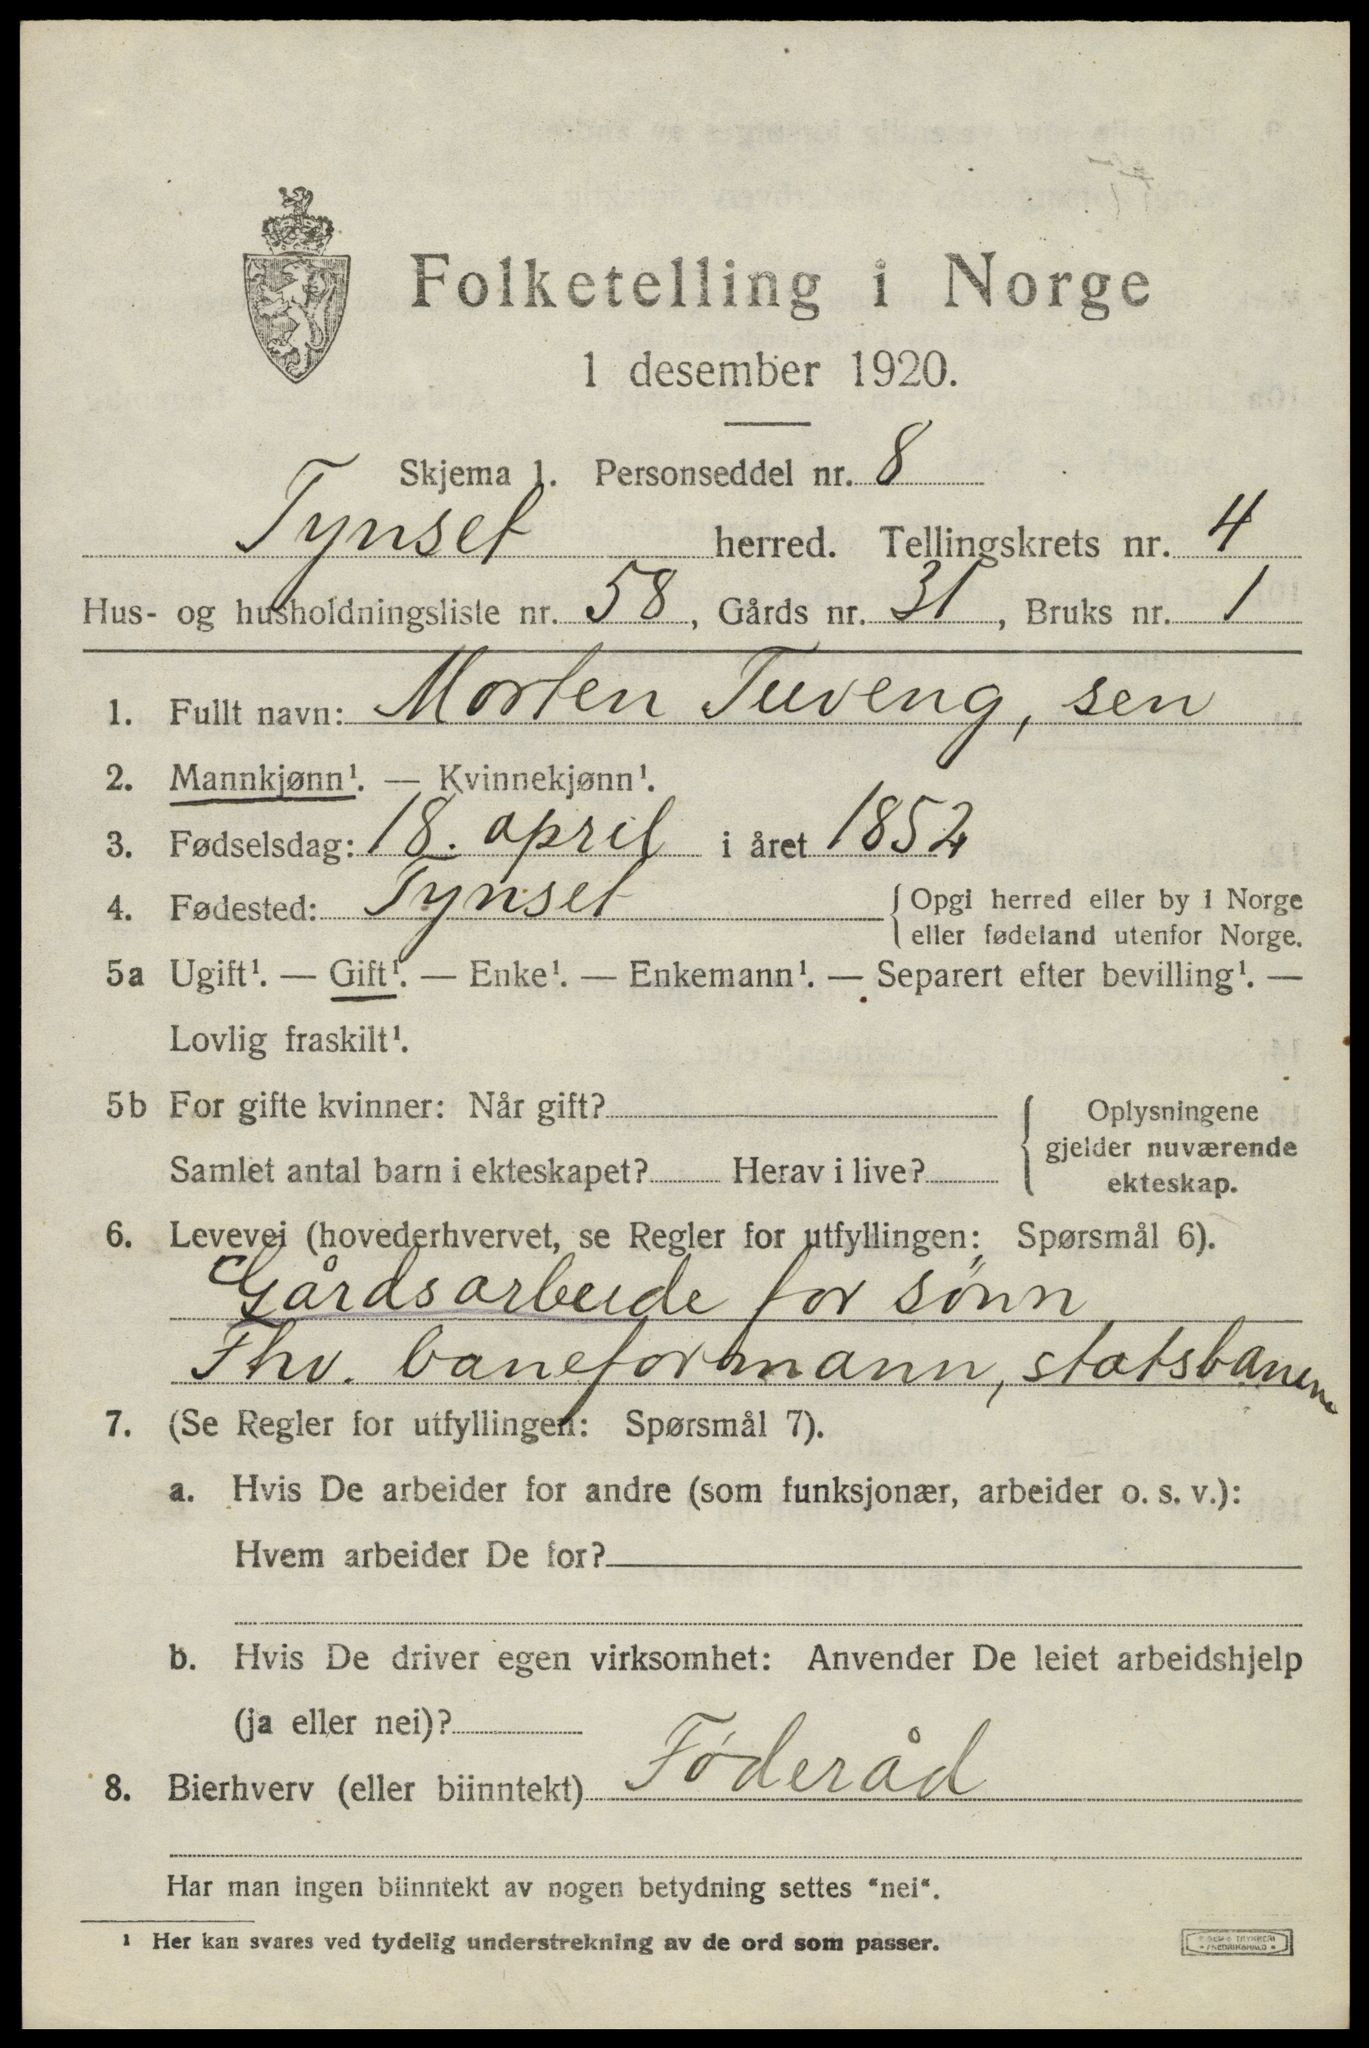 Folketelling i Norge
1 desember 1920.
Skjema 1. Personseddel nr. 8
Tynset herred. Tellingskrets nr. 4
Hus- og husholdningsliste nr. 58, Gårds nr. 31, Bruks nr. 1
1. Fullt navn: Morten Tuveng, sen
2. Mannkjønn¹. — Kvinnekjønn¹.
3. Fødselsdag: 18. april i året 1852
4. Fødested: Tynset { Opgi herred eller by i Norge
eller fødeland utenfor Norge.
5a Ugift¹. — Gift¹. — Enke¹. — Enkemann¹. — Separert efter bevilling¹. —
Lovlig fraskilt¹.
5b For gifte kvinner: Når gift?
Samlet antal barn i ekteskapet? Herav i live?
{ Oplysningene
gjelder nuværende
ekteskap.
6. Levevei (hovederhvervet, se Regler for utfyllingen: Spørsmål 6).
Gårdsarbeide for sønn
Fhv. baneformann, statsbanene
7. (Se Regler for utfyllingen: Spørsmål 7).
a. Hvis De arbeider for andre (som funksjonær, arbeider o. s. v.):
Hvem arbeider De for?
b. Hvis De driver egen virksomhet: Anvender De leiet arbeidshjelp
(ja eller nei)?
8. Bierhverv (eller biinntekt) Føderåd
Har man ingen biinntekt av nogen betydning settes "nei".
¹ Her kan svares ved tydelig understrekning av de ord som passer.